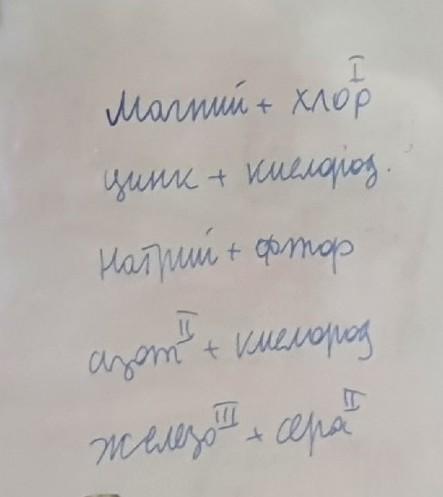 Магний + хлор I
цинк + кислород.
натрий + фтор
азот II + кислород
железо III + сера II